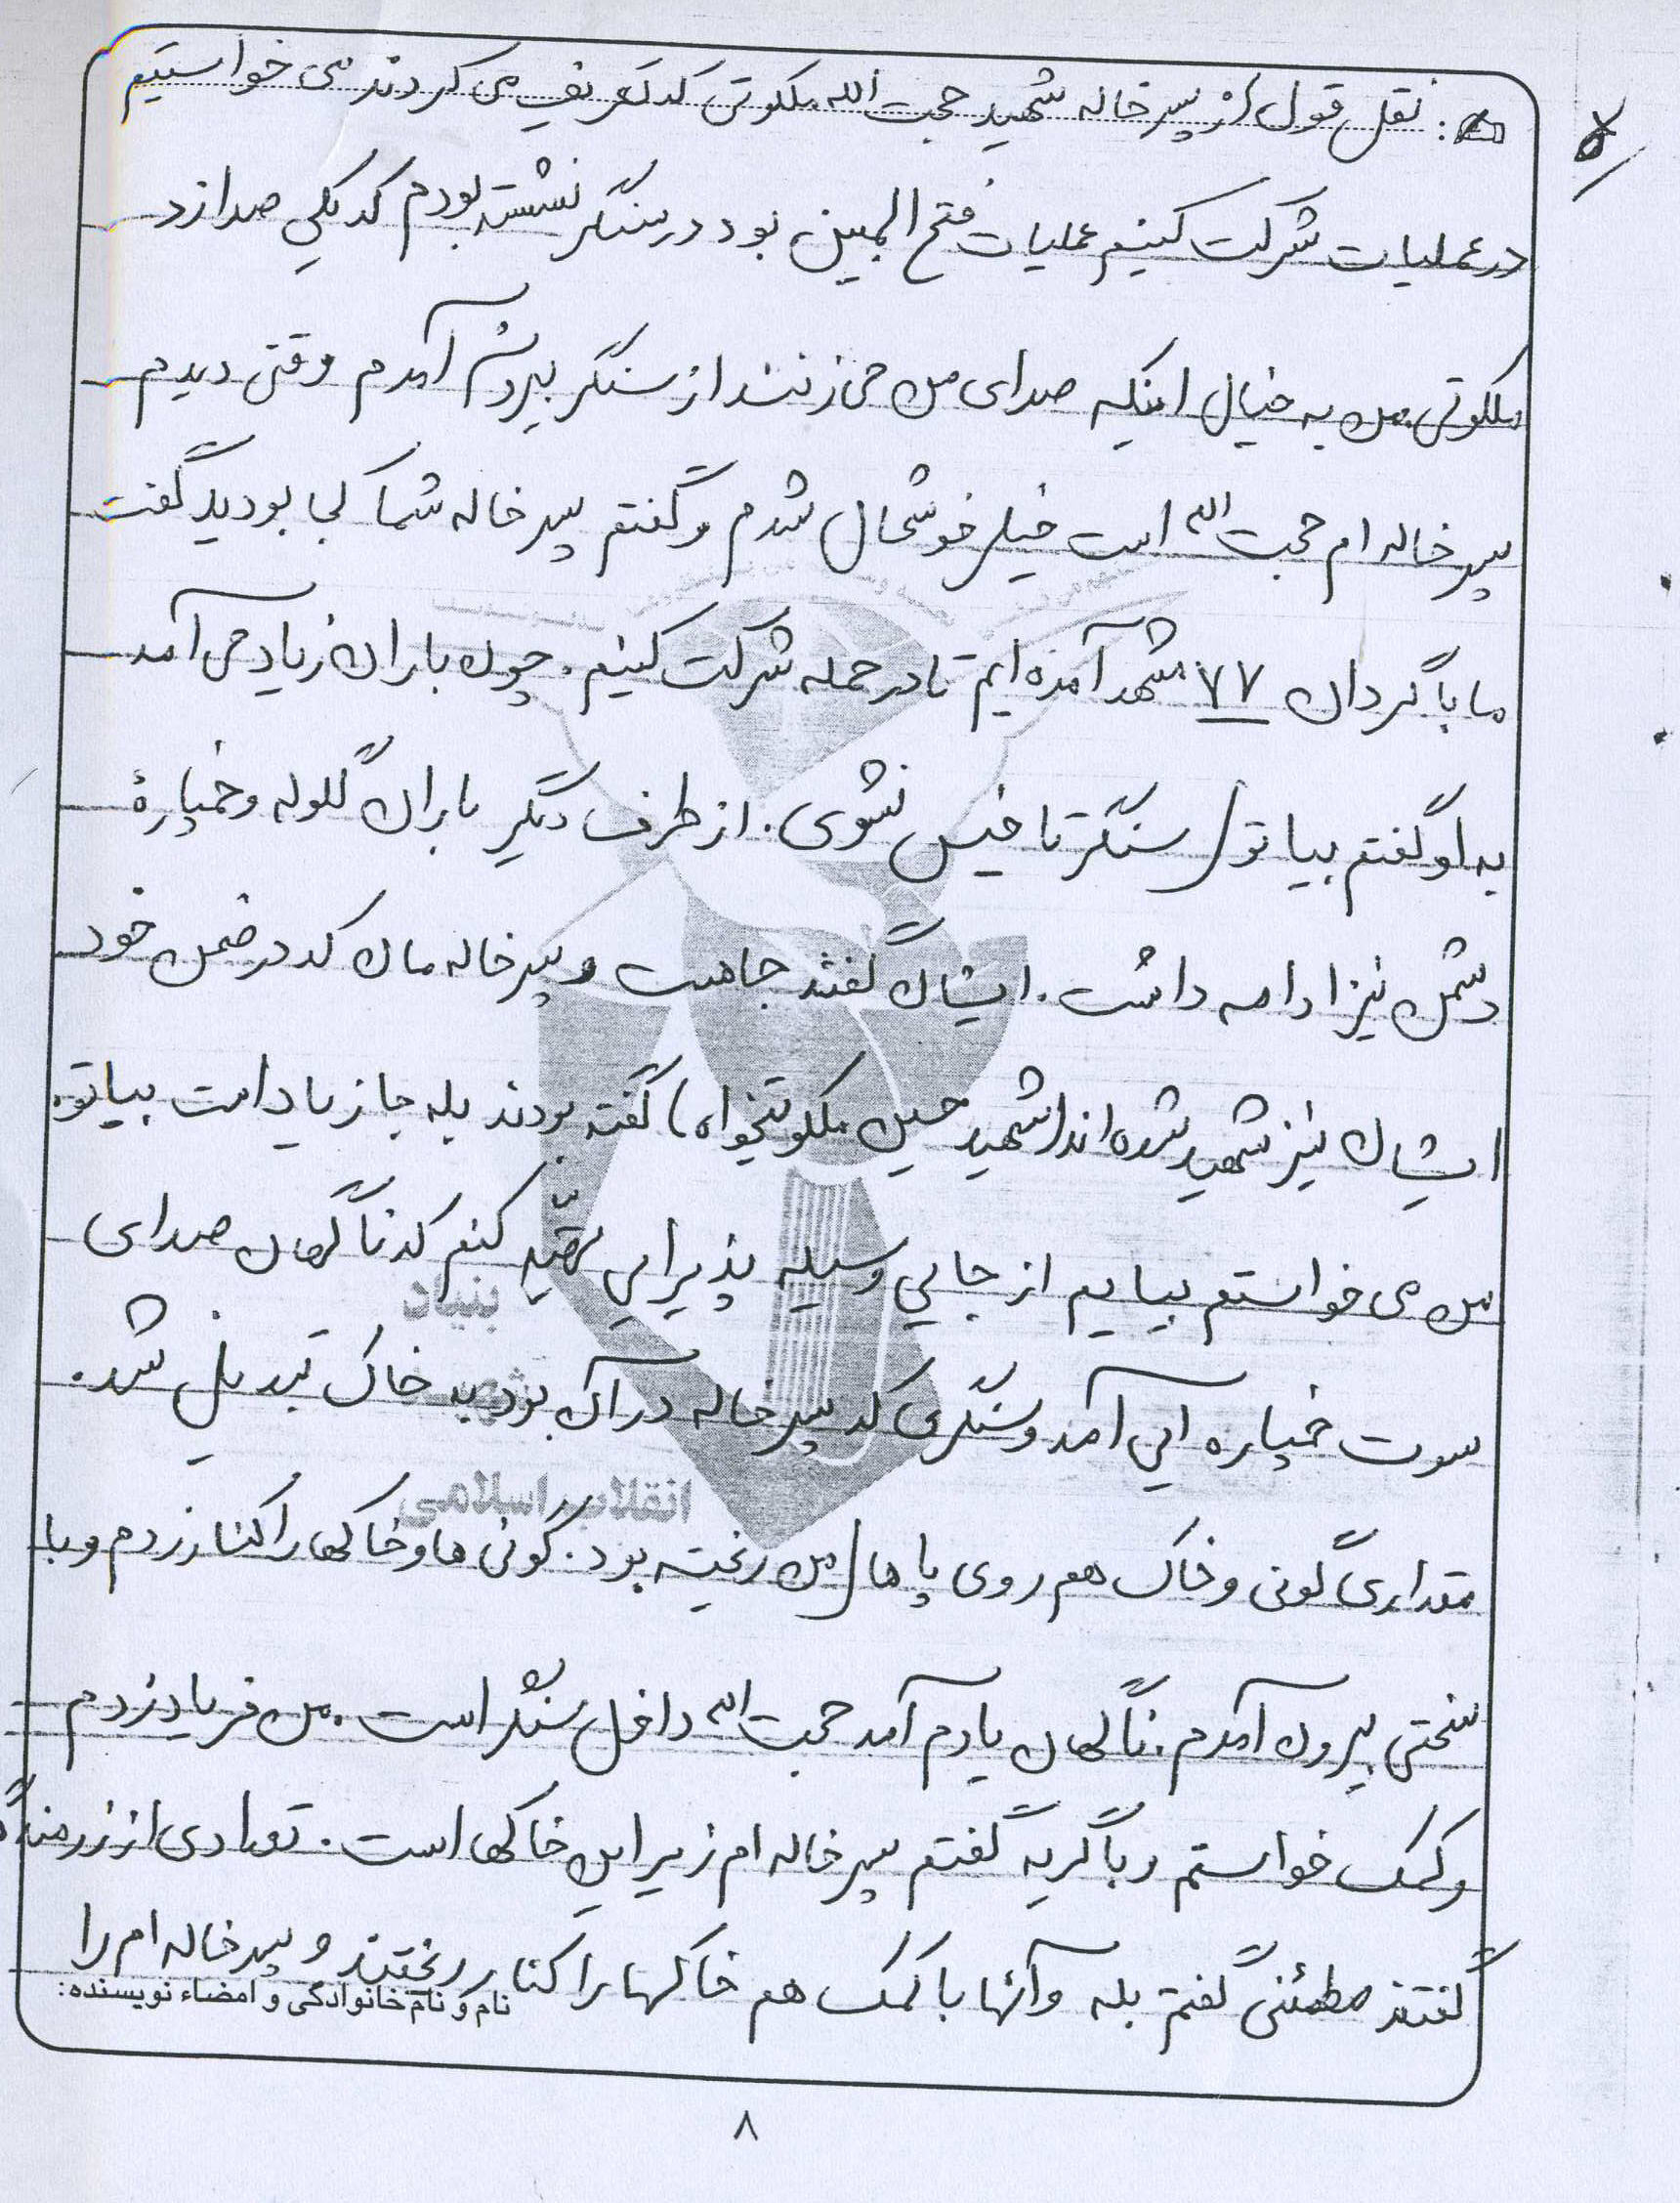 ۵
نقل قول از پسرخاله شهید حجت الله ملکوتی که تعریف می کردند می خواستیم
در عملیات شرکت کنیم عملیات فتح المبین بود در سنگر نشسته بودم که یکی صدا زد
ملکوتی من به خیال اینکه صدای من می زنند از سنگر بیرون آمدم وقتی دیدم
پسرخاله ام حجت الله است خیلی خوشحال شدم و گفتم پسرخاله شما کجا بودید گفت
ما با گردان ۷۷ مشهد آمده ایم تا در حمله شرکت کنیم. چون باران زیاد می آمد
به او گفتم بیا توی سنگر تا خیس نشوی. از طرف دیگر باران گلوله و خمپارهٔ
دشمن نیز ادامه داشت. ایشان گفتند جا هست و پسرخاله مان که در ضمن خود
ایشان نیز شهید شده اند (شهید حسین ملکوتیخواه) گفته بودند بله جا زیاد است بیا تو.
من می خواستم بیایم از جایی وسیله پذیرایی تهیّه کنم که ناگهان صدای
سوت خمپاره ایی آمد و سنگری که پسرخاله در آن بود به خاک تبدیل شد.
مقداری گونی و خاک هم روی پاهای من ریخته بود. گونی ها و خاکها را کنار زدم و با
سختی بیرون آمدم. ناگهان یادم آمد حجت الله داخل سنگر است. من فریاد زدم
و کمک خواستم و با گریه گفتم پسرخاله ام زیر این خاکها است. تعدادی از رزمندگان
گفتند مطمئنی گفتم بله و آنها با کمک هم خاکها را کنار ریختند و پسرخاله ام را
نام و نام خانوادگی و امضاء نویسنده:
۸
بنیاد
شهید
انقلاب اسلامی